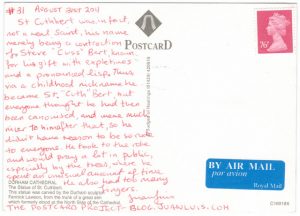 #31 AUGUST 21ST 2011
St Cuthbert was, in fact,
not a real Saint, his name
merely being a contraction
of Steve "Cuss" Bert, known
for his gift with expletives
and a pronounced lisp. Thus,
via a childhood nickname he
became St, "Cuth" Bert, but
everyone thought he had then
been canonised, and were much
nicer to him after that, so he
didn't have reason to be rude
to everyone. He took to the role
and would pray a lot in public,
especially by the trees, where he
spent an unusual amount of time
He also had ten many
fingers.
THE POSTCARD PROJECT - BLOG.JUANLUIS.COM
POSTCARD
76p
DURHAM CATHEDRAL
The Statue of St. Cuthbert.
The statue was carved by the Durham sculptor
Fenwick Lawson, from the trunk of a great elm
which formerly stood at the North Range of the Cathedral.
BY AIR MAIL
par avion
Royal Mail